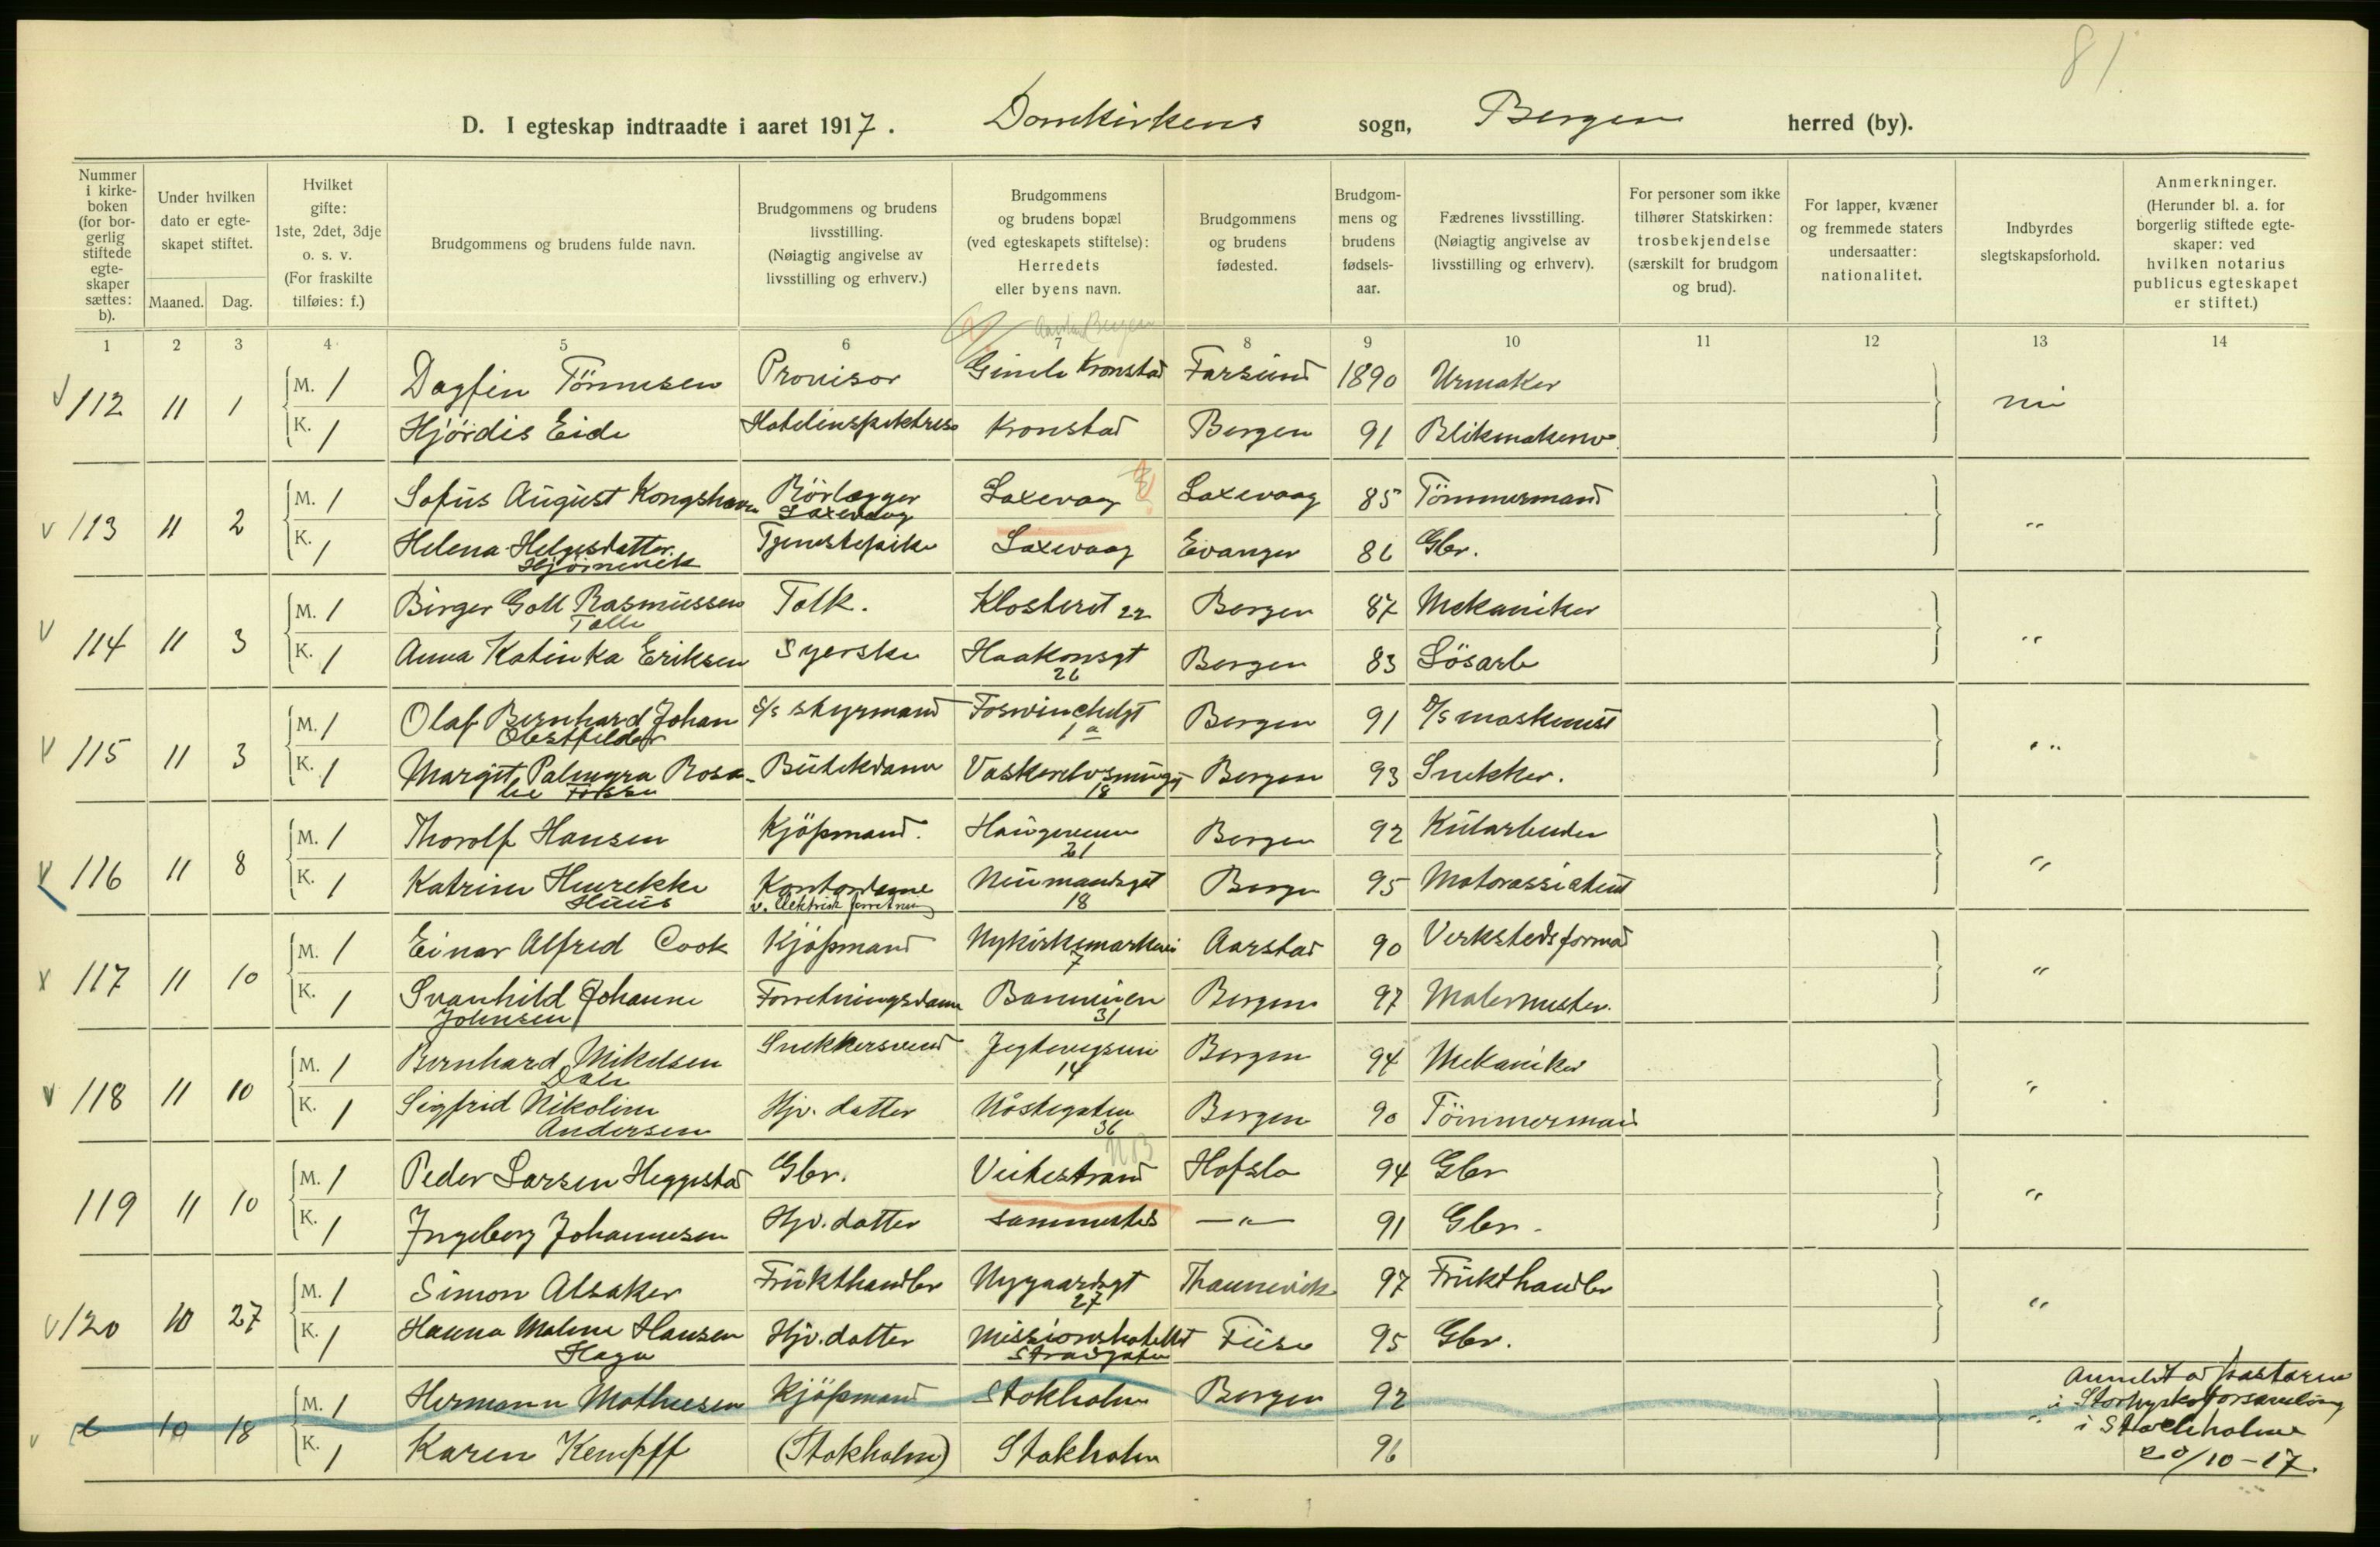 81.
D. I egteskap indtraadte i aaret 1917. Domkirkens sogn, Bergen herred (by).
Nummer i kirke-boken (for bor-gerlig stiftede egte-skaper sættes: b).
Under hvilken dato er egte-skapet stiftet.
Maaned. Dag.
Hvilket gifte: 1ste, 2det, 3dje o. s. v. (For fraskilte tilføies: f.)
Brudgommens og brudens fulde navn.
Brudgommens og brudens livsstilling. (Nøiagtig angivelse av livsstilling og erhverv.)
Brudgommens og brudens bopæl (ved egteskapets stiftelse): Herredets eller byens navn.
Brudgommens og brudens fødested.
Brudgom-mens og brudens fødsels-aar.
Fædrenes livsstilling. (Nøiagtig angivelse av livsstilling og erhverv).
For personer som ikke tilhører Statskirken: trosbekjendelse (særskilt for brudgom og brud).
For lapper, kvæner og fremmede staters undersaatter: nationalitet.
Indbyrdes slegtskapsforhold.
Anmerkninger. (Herunder bl. a. for borgerlig stiftede egte-skaper: ved hvilken notarius publicus egteskapet er stiftet.)
1 2 3 4 5 6 7 8 9 10 11 12 13 14
112 11 1 M. 1 Dagfin Tönnesen Provisor Gimle Kronstad Farsund 1890 Urmaker
K. 1 Hjördis Eide Hotelinspektrise Kronstad Bergen 91 Blikmakersv.
nei
113 11 2 M. 1 Sofus August Kongshavn Rörlægger Laxevaag Laxevaag 85 Tömmermand
Laxevaag
K. 1 Helena Helgesdatter Tjenestepike Laxevaag Evanger 86 Gbr. "
Hjörnevik
114 11 3 M. 1 Birger Goll Rasmussen Tolk. Klosteret 22 Bergen 87 Mekaniker
K. 1 Anna Katinka Eriksen Syerske Haakonsgt 26 Bergen 83 Lösarb "
115 11 3 M. 1 Olaf Bernhard Johan S/s styrmand 1a Bergen 91 D/s maskinist
Obstfelder
K. 1 Margit Palmyra Rosa- Butikdame 18 Bergen 93 Snekker. "
lie Fosse
116 11 8 M. 1 Thorolf Hansen Kjöpmand. Haugeveien 21 Bergen 92 Kularbeider
K. 1 Katrine Henrekke Kontordame Neumandsgt 18 Bergen 95 Motorassistent "
Huus v. Elektrisk forretning
117 11 10 M. 1 Einar Alfred Cook Kjöpmand Nykirkemarken 7 Aarstad 90 Verkstedsformad
K. 1 Svanhild Johanne Forretningsdame 31 Bergen 97 Malermester. "
Johnsen
118 11 10 M. 1 Bernhard Mikelsen Snekkersvend 14 Bergen 94 Mekaniker
Dale
K. 1 Sigfrid Nikoline Hjv. datter Nöstegaten 36 Bergen 90 Tömmermand "
Andersen
NB
119 11 10 M. 1 Peder Larsen Heggestad Gbr. Veitestrand Hafslo 94 Gbr
K. 1 Ingeborg Johannesen Hjv. datter sammested — " — 91 Gbr. "
120 10 27 M. 1 Simon Alsaker Frukthandler Nygaardsgt 27 Thaunevik 97 Frukthandler
K. 1 Hanna Malene Hansen Hjv. datter Missionshotellet Fuse 95 Gbr. "
Haga Strandgaten
e 10 18 M. 1 Hermann Mathiesen Kjöpmand Stokholm Bergen 92
K. 1 Karen Kempff (Stokholm) Stokholm 96 "
Anmeldt av pastoren
i Storkyrkoforsamling
i Stockholm
20/10-17.